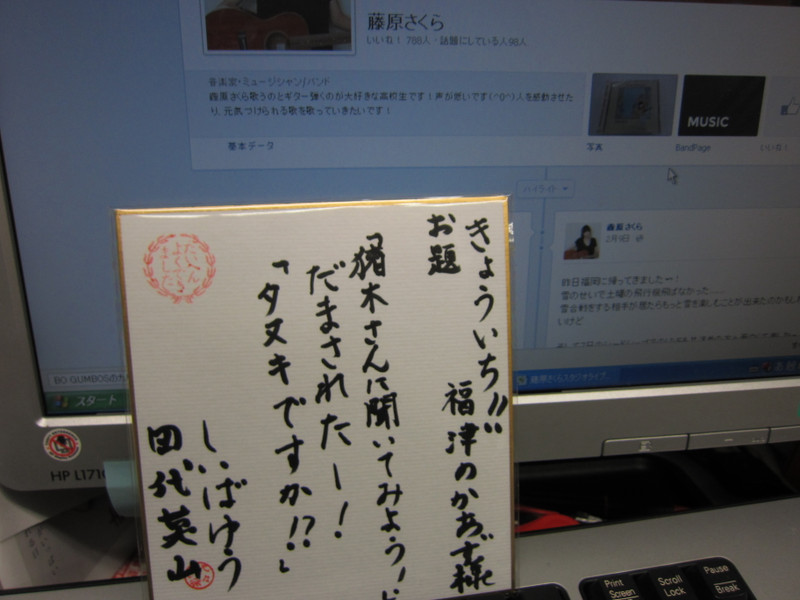 藤原さくら
いいね！ 788人・話題にしている人98人
音楽家・ミュージシャン/バンド
藤原さくら歌うのとギター弾くのが大好きな高校生です！声が低いです(^O^)人を感動させた
り、元気づけられる歌を歌っていきたいです！
基本データ
MUSIC
写真
BandPage
いいね！
ハイライト
藤原さくら
2月9日
昨日福岡に帰ってきましたー！
雪のせいで土曜の飛行機飛ばなかった……
雪合戦をする相手が居たらもっと雪を楽しむことが出来たのかもしれ
ないけど
スタート
藤原さくらスタジオライブ
HP L1710
きょういち!!
福津のかあず様
お題
「猪木さんに聞いてみよう！」
だまされたー！
「タヌキですか!?」
しいばゆう
田代英山
たいへん
よくでき
ました
Print
Screen
Scroll
Lock
Pause
Break